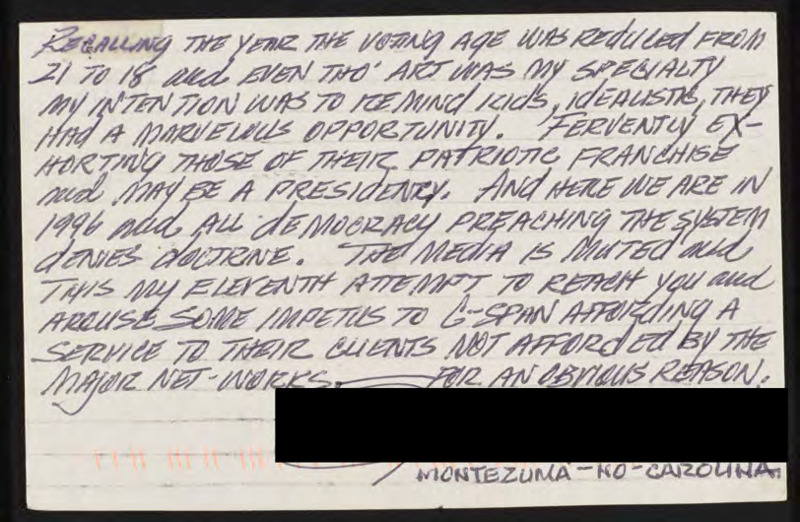 RECALLING THE YEAR THE VOTING AGE WAS REDUCED FROM
21 TO 18 and EVEN THO' ART WAS MY SPECIALTY
MY INTENTION WAS TO REMIND KIDS, IDEALISTIC, THEY
HAD A MARVELOUS OPPORTUNITY. FERVENTLY EX-
HORTING THOSE OF THEIR PATRIOTIC FRANCHISE
and MAY BE A PRESIDENCY. AND HERE WE ARE IN
1996 and ALL DEMOCRACY PREACHING THE SYSTEM
DENIES DOCTRINE. THE MEDIA IS MUTED and
THIS MY ELEVENTH ATTEMPT TO REACH YOU and
AROUSE SOME IMPETUS TO C-SPAN AFFORDING A
SERVICE TO THEIR CLIENTS NOT AFFORDED BY THE
MAJOR NET-WORKS. FOR AN OBVIOUS REASON.
MONTEZUMA-NO-CAROLINA